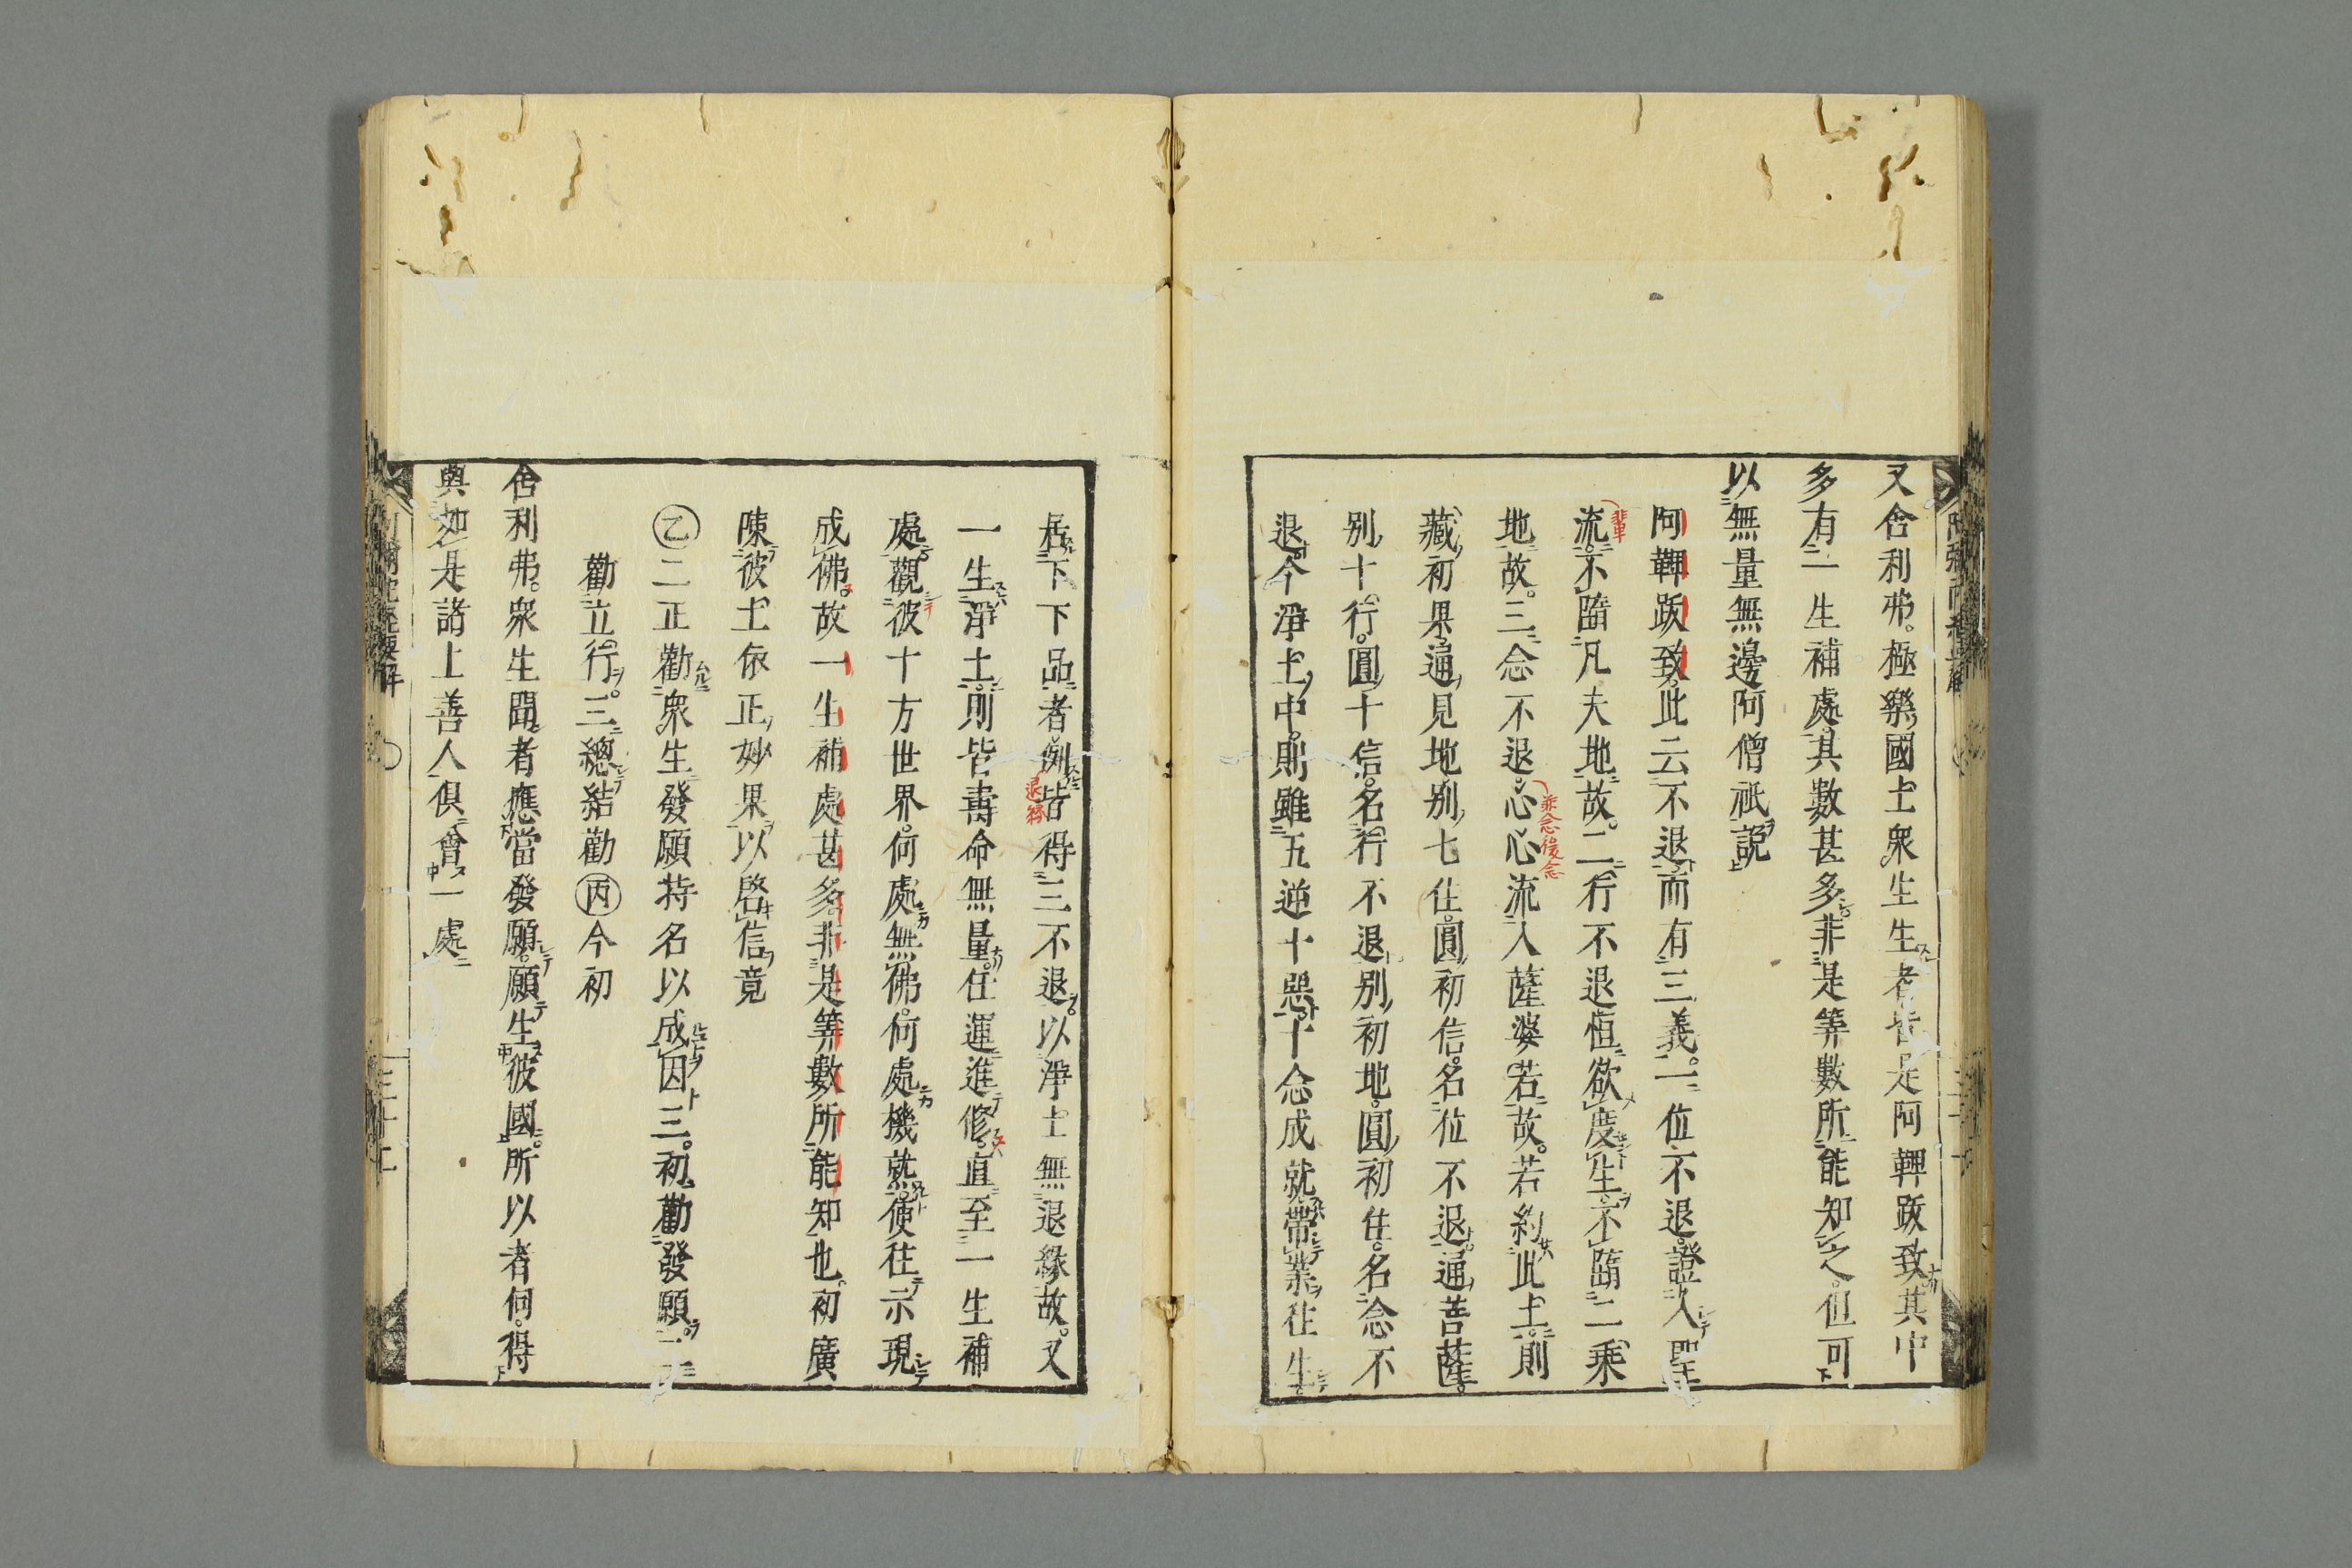 又舍利弗。極樂國土衆生生者皆是阿鞞跋致其中
多有一生補處。其數甚多。非是筭數所能知之。但可
以無量無邊阿僧祇說
阿鞞跋致。此云不退。而有三義。一位不退。證入聖
流。不隨凡夫地故。二行不退。恒欲度生。不隨二乘
地故。三念不退。心心流入薩婆若故。若約此土。則
藏初果。通見地。別七住。圓初信。名位不退。通菩薩。
別十行。圓十信。名行不退。別初地。圓初住。名念不
退。今淨土中。則雖五逆十惡。十念成就。帶業往生
居下下品者。例皆得三不退。以淨土無退緣故。又
一生淨土。則皆壽命無量。任運進修。直至一生補
處。觀彼十方世界。何處無佛。何處機熟。便往示現
成佛。故一生補處甚多。非是筭數所能知也。初廣
陳彼土依正妙果。以啓信竟
㊁二正勸衆生發願持名以成因三。初勸發願。二
勸立行。三總結勸 丙今初
舍利弗。衆生聞者。應當發願。願生彼國。所以者何。得
與如是諸上善人俱會一處
三十二